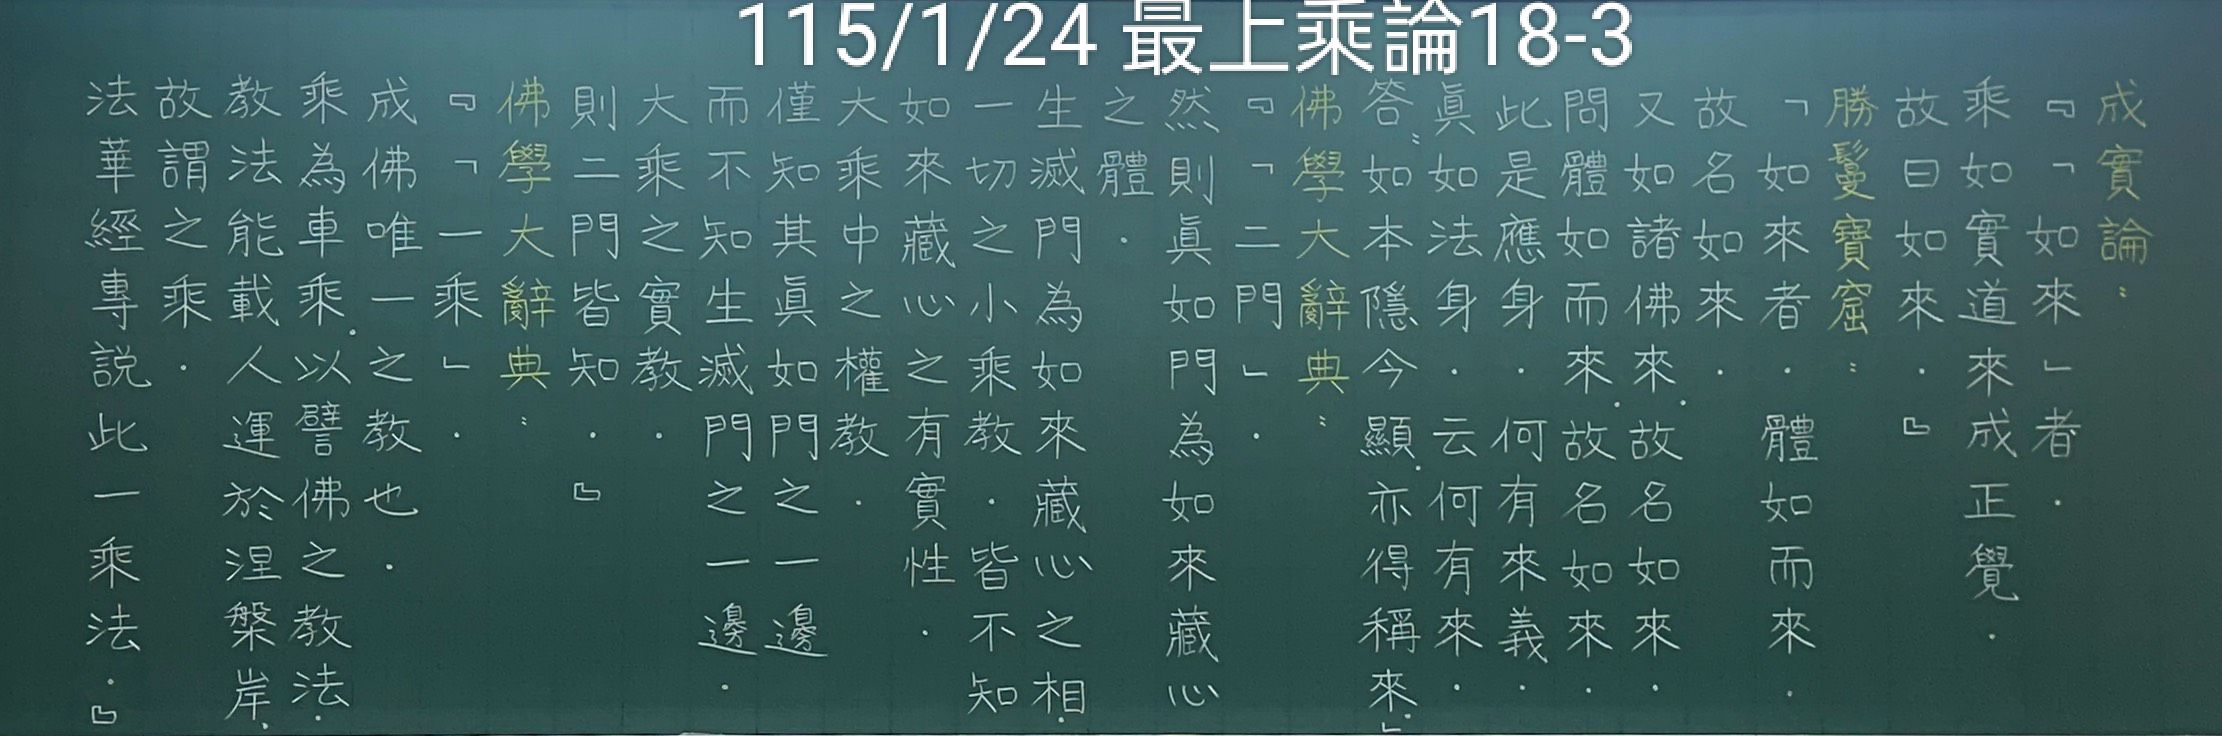 115/1/24 最上乘論18-3
成實論：
『「如來」者．
乘如實道來成正覺．
故曰如來．』
勝鬘寶窟：
「如來者．體如而來．
故名如來．
又如諸佛來．故名如來．
問體如而來．故名如來．
此是應身．何有來義．
眞如法身．云何有來．
答：如本隱今顯．亦得稱來．」
佛學大辭典：
『「二門」．
然則眞如門為如來藏心
之體．
生滅門為如來藏心之相．
一切之小乘教．皆不知
如來藏心之有實性．
大乘中之權教．
僅知其眞如門之一邊
而不知生滅門之一邊．
大乘之實教．
則二門皆知．』
佛學大辭典：
『「一乘」．
成佛唯一之教也．
乘為車乘．以譬佛之教法．
教法能載人運於涅槃岸．
故謂之乘．
法華經專説此一乘法．』